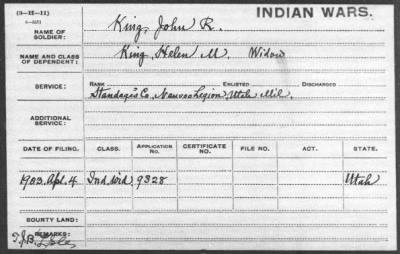 (3-H-11)
INDIAN WARS.
NAME OF SOLDIER: King, John R.
NAME AND CLASS OF DEPENDENT: King, Helen M. Widow
SERVICE: RANK ENLISTED DISCHARGED
Standage's Co., Nauvoo Legion, Utah Mil.
ADDITIONAL SERVICE:
DATE OF FILING. CLASS. APPLICATION No. CERTIFICATE NO. FILE NO. ACT. STATE.
1903. Apl. 4 Ind. Wid 9328 Utah
BOUNTY LAND:
REMARKS: